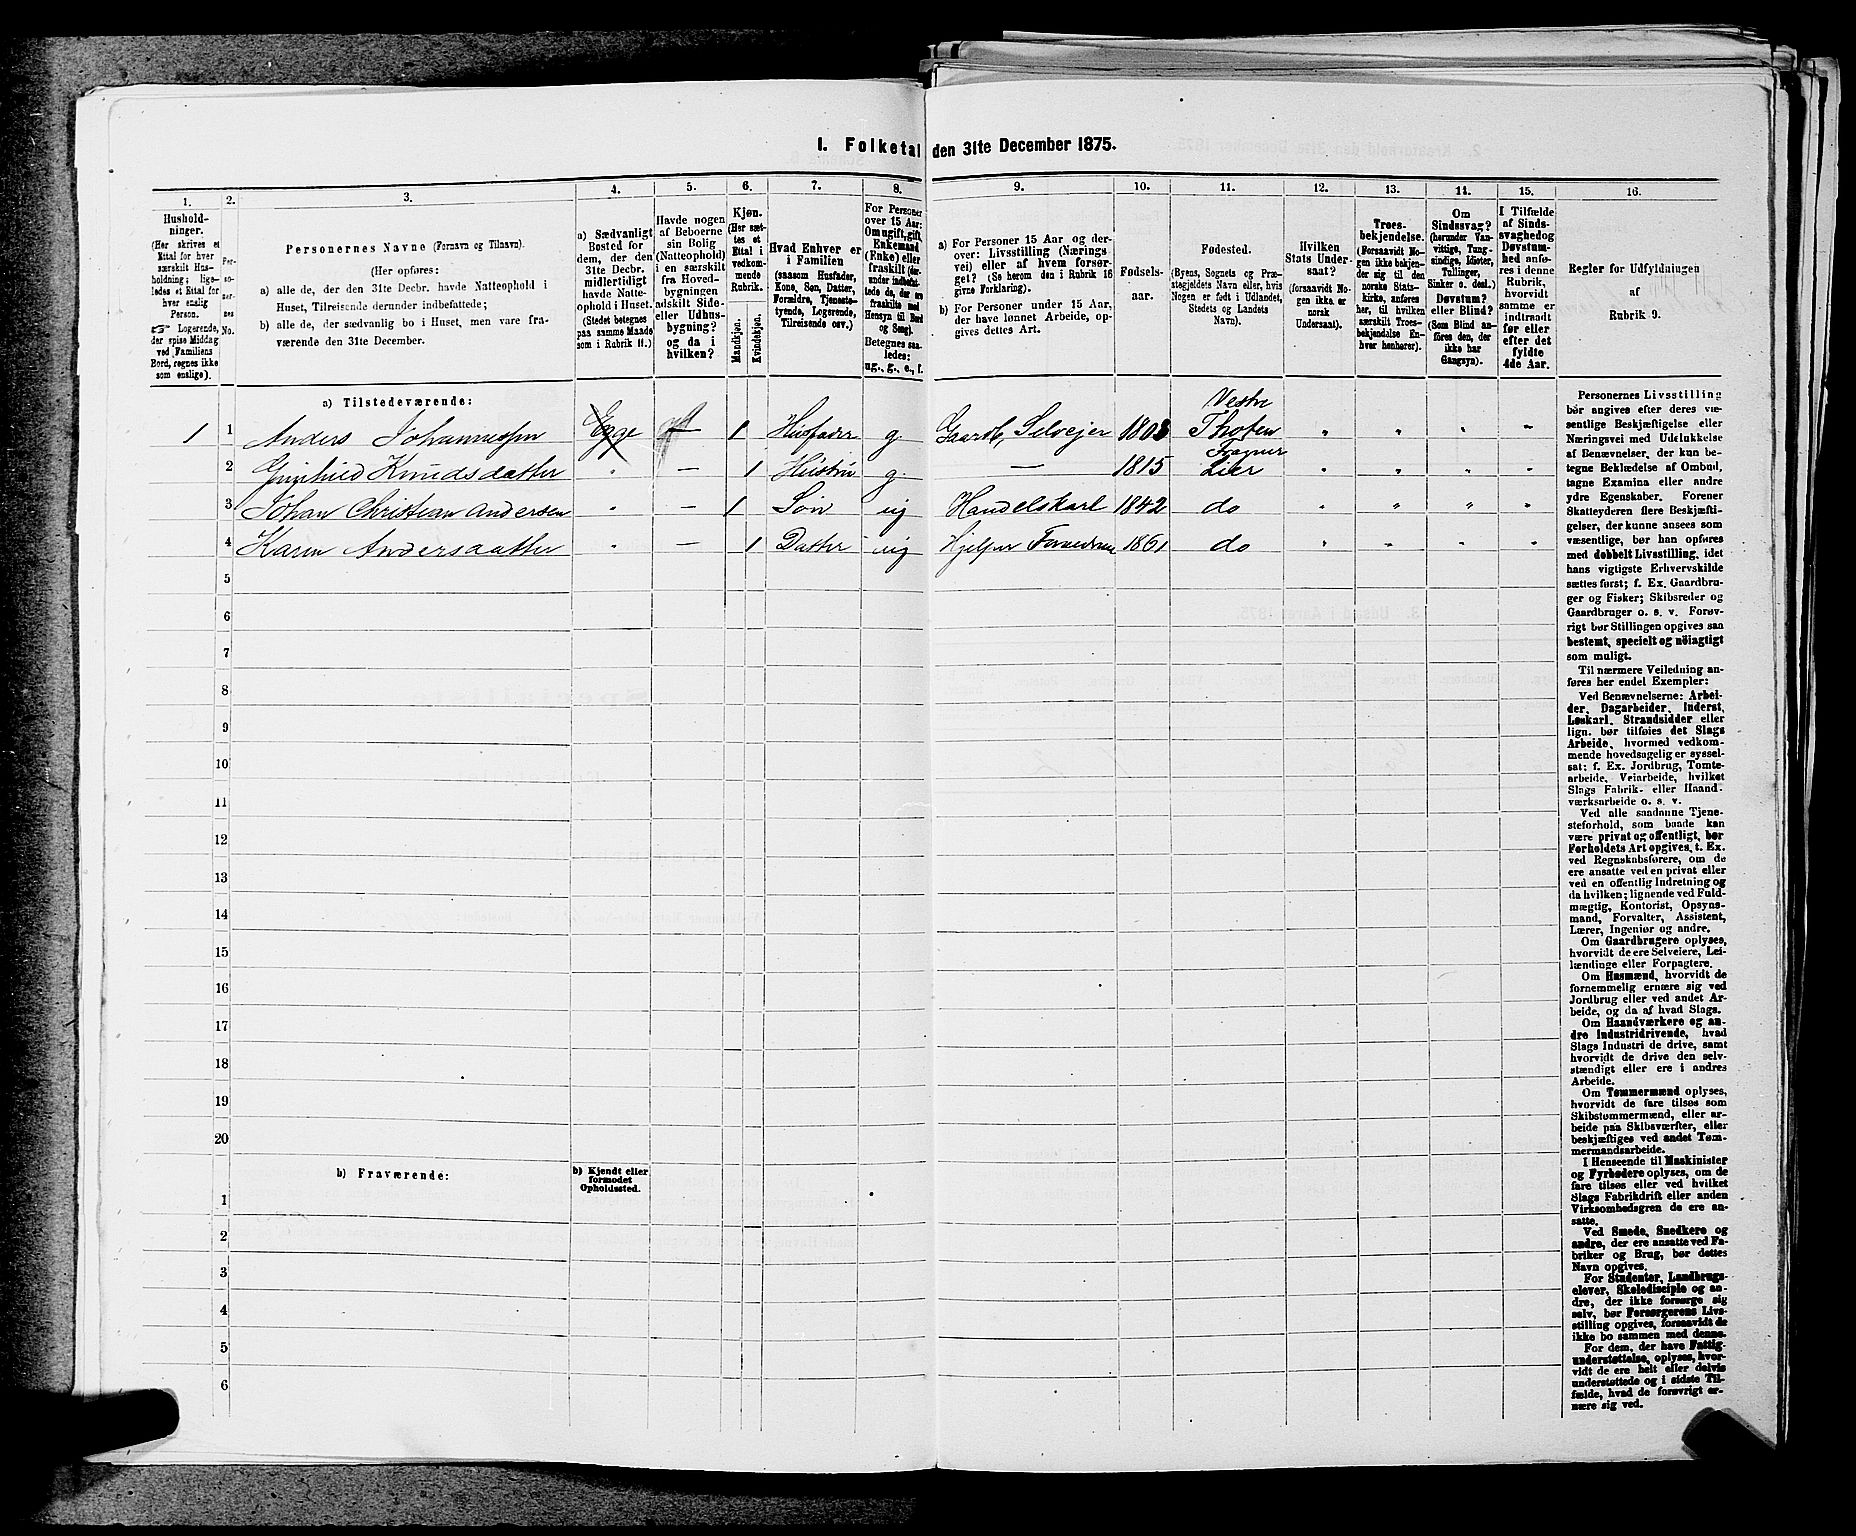 1. Folketal den 31te December 1875.
1. 2. 3. 4. 5. 6. 7. 8. 9. 10. 11. 12. 13. 14. 15. 16.
Hushold-
ninger.
(Her skrives et
Ettal for hver
særskilt Hus-
holdning; lige-
ledes et Ettal for
hver enslig
Person.
☞ Logerende,
der spise Middag
ved Familiens
Bord, regnes ikke
som enslige).
Per-
so-
ner-
nes
No.
Personernes Navne (Fornavn og Tilnavn).
(Her opføres:
a) alle de, der den 31te Decbr. havde Natteophold i
Huset, Tilreisende derunder indbefattede;
b) alle de, der sædvanlig bo i Huset, men vare fra-
værende den 31te December.
a) Sædvanligt
Bosted for
dem, der den
31te Decbr.
midlertidigt
havde Natte-
ophold i Huset.
(Stedet betegnes
paa samme Maade
som i Rubrik 11.)
Havde nogen
af Beboerne
sin Bolig
(Natteophold)
i en særskilt
fra Hoved-
bygningen
adskilt Side-
eller Udhus-
bygning?
og da i
hvilken?
Kjøn.
(Her sæt-
tes et
Ettal i
vedkom-
mende
Rubrik.
Mandkjøn.
Kvindekjøn.
Hvad Enhver er
i Familien
(saasom Husfader,
Kone, Søn, Datter,
Forældre, Tjeneste-
tyende, Logerende,
Tilreisende osv.)
For Personer
over 15 Aar:
Om ugift, gift,
Enkemand
(Enke) eller
fraskilt (der-
under indbefat-
tede de, der ere
fraskilte med
Hensyn til Bord
og Seng).
Betegnes saa-
ledes:
ug., g., e., f.
a) For Personer 15 Aar og der-
over: Livsstilling (Nærings-
vei) eller af hvem forsør-
get? (Se herom den i Rubrik 16
givne Forklaring).
b) For Personer under 15 Aar,
der have lønnet Arbeide, op-
gives dettes Art.
Fødsels-
aar.
Fødested.
(Byens, Sognets og Præ-
stegjeldets Navn, eller, hvis
Nogen er født i Udlandet,
Stedets og Landets
Navn).
Hvilken
Stats Under-
saat?
(forsaavidt No-
gen ikke er
norsk
Undersaat).
Troes-
bekjendelse.
(Forsaavidt No-
gen ikke bekjen-
der sig til den
norske Stats-
kirke, anføres
her, til hvilken
særskilt Troes-
bekjendelse En-
hver henhører).
Om
Sindssvag?
(herunder Van-
vittige, Tung-
sindige, Idioter,
Tullinger,
Sinker o. desl.)
Døvstum?
eller Blind?
(Som Blind an-
føres den, der
ikke har
Gangsyn).
I Tilfælde
af Sinds-
svaghedog
Døvstum-
hed anfø-
res i denne
Rubrik,
hvorvidt
samme er
indtraadt
før eller
efter det
fyldte
4de Aar.
Regler for Udfyldningen
af
Rubrik 9.
a) Tilstedeværende:
1 1 Anders Johannesen Egge 1 Husfader g. Gaardb, Selveier 1808 Vestre Thoten " " " "
2 Gunhild Knudsdatter " — 1 Hustru g. — 1815 Lier " " " "
3 Johan Christian Andersen " — 1 Søn ug Handelskarl 1842 do " " " "
4 Karen Andersdatter " — 1 Datter ug Hjelper 1861 do " " " "
5
6
7
8
9
10
11
12
13
14
15
16
17
18
19
20
b) Fraværende:
b) Kjendt eller
formodet
Opholdssted.
1
2
3
4
5
6
Personernes Livsstilling
bør angives efter deres væ-
sentlige Beskjæftigelse eller
Næringsvei med Udelukkelse
af Benævnelser, der kun be-
tegne Beklædelse af Ombud,
tagne Examina eller andre
ydre Egenskaber. Forener
Skatteyderen flere Beskjæfti-
gelser, der kunne ansees som
væsentlige, bør han opføres
med dobbelt Livsstilling, idet
hans vigtigste Erhvervskilde
sættes først; f. Ex. Gaardbru-
ger og Fisker; Skibsreder og
Gaardbruger o. s. v. Forøv-
rigt bør Stillingen opgives saa
bestemt, specielt og nöiagtigt
som muligt.
Til nærmere Veiledning an-
føres her endel Exempler:
Ved Benævnelserne: Arbei-
der, Dagarbeider, Inderst,
Løskarl, Strandsidder eller
lign. bør tilføies det Slags
Arbeide, hvormed vedkom-
mende hovedsagelig er syssel-
sat: f. Ex. Jordbrug, Tomte-
arbeide, Veiarbeide, hvilket
Slags Fabrik- eller Haand-
værksarbeide o. s. v.
Ved alle saadanne Tjene-
steforhold, som baade kan
være privat og offentligt, bør
Forholdets Art opgives, t. Ex.
ved Regnskabsførere, om de
ere ansatte ved en privat eller
ved en offentlig Indretning og
da hvilken; lignende ved Fuld-
mægtig, Kontorist, Opsyns-
mand, Forvalter, Assistent,
Lærer, Ingeniør og andre.
Om Gaardbrugere oplyses,
hvorvidt de ere Selveiere, Lei-
lændinge eller Forpagtere.
Om Husmænd, hvorvidt de
fornemmelig ernære sig ved
Jordbrug eller ved andet Ar-
beide, og da af hvad Slags.
Om Haandværkere og an-
dre Industridrivende, hvad
Slags Industri de drive, samt
hvorvidt de drive den selv-
stændigt eller ere i andres
Arbeide.
Om Tømmermænd oplyses,
hvorvidt de fare tilsøs som
Skibstømmermænd, eller ar-
beide paa Skibsværfter, eller
beskjæftiges ved andet Tøm-
mermandsarbeide.
I Henseende til Maskinister
og Fyrbødere oplyses, om de
fare tilsøs eller ved hvilket
Slags Fabrikdrift eller anden
Virksomhedsgren de ere an-
satte.
Ved Smede, Snedkere og
andre, der ere ansatte ved Fa-
briker og Brug, bør dettes
Navn opgives.
For Studenter, Landbrugs-
elever, Skoledisciple og an-
dre, der ikke forsørge sig
selv, bør Forsørgerens Livs-
stilling opgives, forsaavidt de
ikke bo sammen med denne.
For dem, der have Fattig-
understøttelse, oplyses, hvor-
vidt de ere helt eller delvis
understøttede og i sidste Til-
fælde, hvad de forøvrigt er-
nære sig ved.